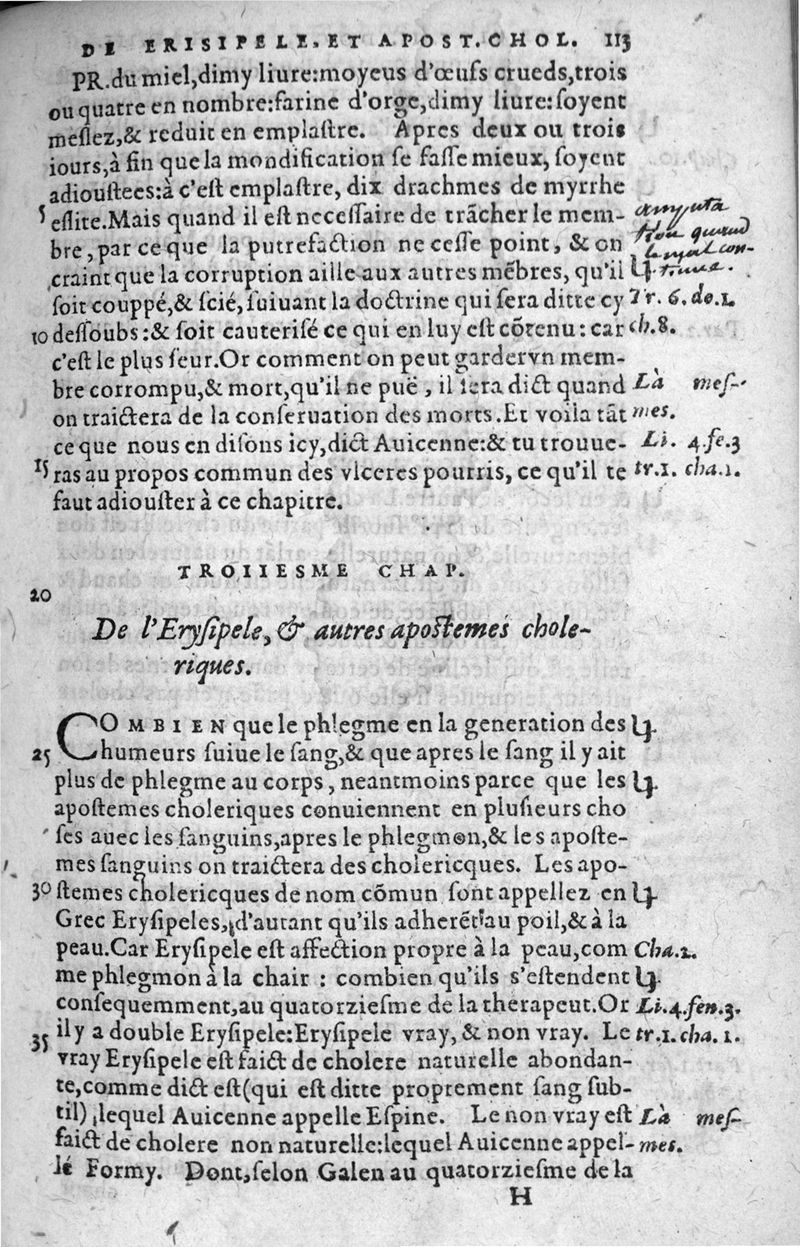 DE ERISIPELE, ET APOST. CHOL. 113
PR. du miel, dimy liure: moyeus d'œufs crueds, trois
ou quatre en nombre: farine d'orge, dimy liure: ſoyent
meſlez, & reduit en emplaſtre. Apres deux ou trois
iours, à fin que la mondification ſe faſſe mieux, ſoyent
adiouſtees: à c'eſt emplaſtre, dix drachmes de myrrhe
5 eſlite. Mais quand il eſt neceſſaire de trãcher le mem- amputa
bre, par ce que la putrefaction ne ceſſe point, & on tion quand
craint que la corruption aille aux autres mẽbres, qu'il le mal con-
ſoit couppé, & ſcié, ſuiuant la doctrine qui ſera ditte cy Tr. 6. do. 1.
10 deſſoubs: & ſoit cauteriſé ce qui en luy eſt cõtenu: car ch. 8.
c'eſt le plus ſeur. Or comment on peut garder vn mem-
bre corrompu, & mort, qu'il ne puë, il ſera dict quand Là meſ-
on traictera de la conſeruation des morts. Et voila tãt mes.
ce que nous en diſons icy, dict Auicenne: & tu trouue- Li. 4. fe. 3
15 ras au propos commun des vlceres pourris, ce qu'il te tr. 1. cha. 1.
faut adiouſter à ce chapitre.
TROIIESME CHAP.
20
De l'Eryſipele, & autres apoſtemes chole-
riques.
COMBIEN que le phlegme en la generation des
25 humeurs ſuiue le ſang, & que apres le ſang il y ait
plus de phlegme au corps, neantmoins parce que les
apoſtemes choleriques conuiennent en pluſieurs cho
ſes auec les ſanguins, apres le phlegmon, & les apoſte-
mes ſanguins on traictera des cholericques. Les apo-
30 ſtemes cholericques de nom cõmun ſont appellez en
Grec Eryſipeles, d'autant qu'ils adherẽt au poil, & à la
peau. Car Eryſipele eſt affection propre à la peau, com Cha. 2.
me phlegmon à la chair: combien qu'ils s'eſtendent
conſequemment, au quatorzieſme de la therapeut. Or Li. 4. fen. 3.
35 il y a double Eryſipele: Eryſipele vray, & non vray. Le tr. 1. cha. 1.
vray Eryſipele eſt faict de cholere naturelle abondan-
te, comme dict eſt (qui eſt ditte proprement ſang ſub-
til) lequel Auicenne appelle Eſpine. Le non vray eſt Là meſ-
faict de cholere non naturelle: lequel Auicenne appel- mes.
le Formy. Dont, ſelon Galen au quatorzieſme de la
H